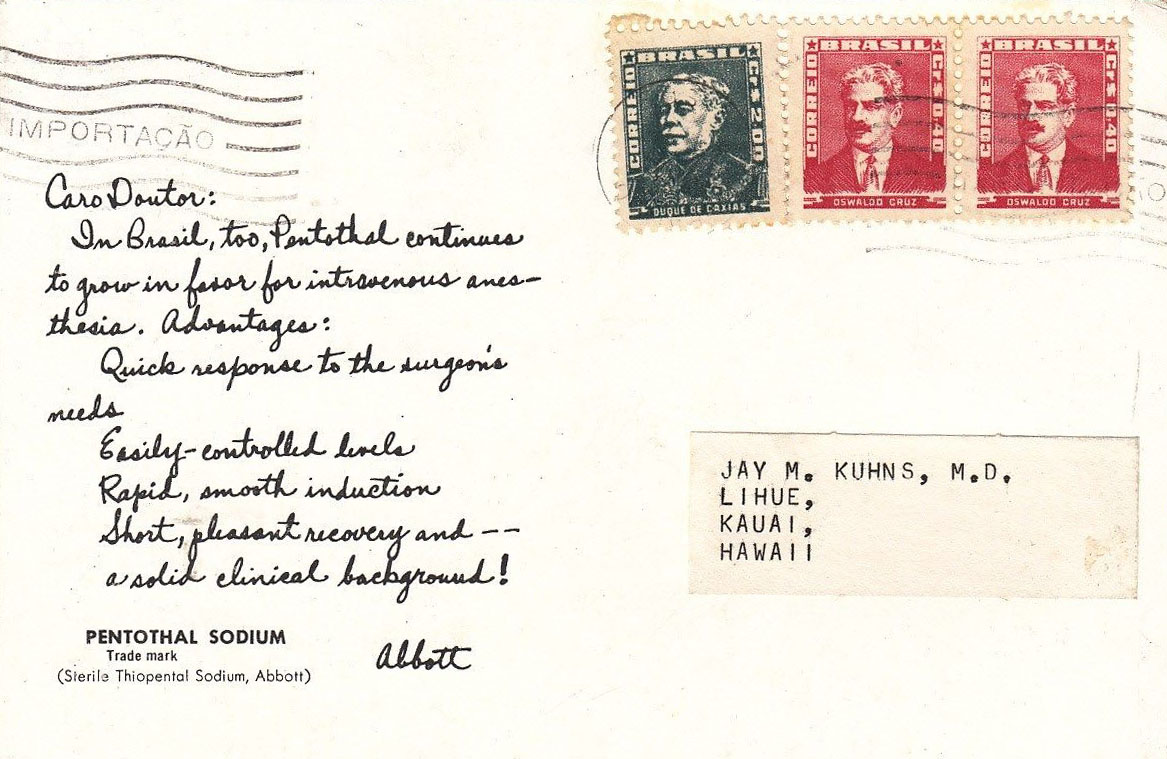 IMPORTAÇÃO
BRASIL
CORREIO
CR$ 2,00
DUQUE DE CAXIAS
BRASIL
CORREIO
CR$ 0,40
OSWALDO CRUZ
BRASIL
CORREIO
CR$ 0,40
OSWALDO CRUZ
Caro Doutor:
In Brasil, too, Pentothal continues
to grow in favor for intravenous anes-
thesia. Advantages:
Quick response to the surgeon's
needs
Easily-controlled levels
Rapid, smooth induction
Short, pleasant recovery and --
a solid clinical background!
PENTOTHAL SODIUM
Trade mark
(Sterile Thiopental Sodium, Abbott)
Abbott
JAY M. KUHNS, M.D.
LIHUE,
KAUAI,
HAWAII